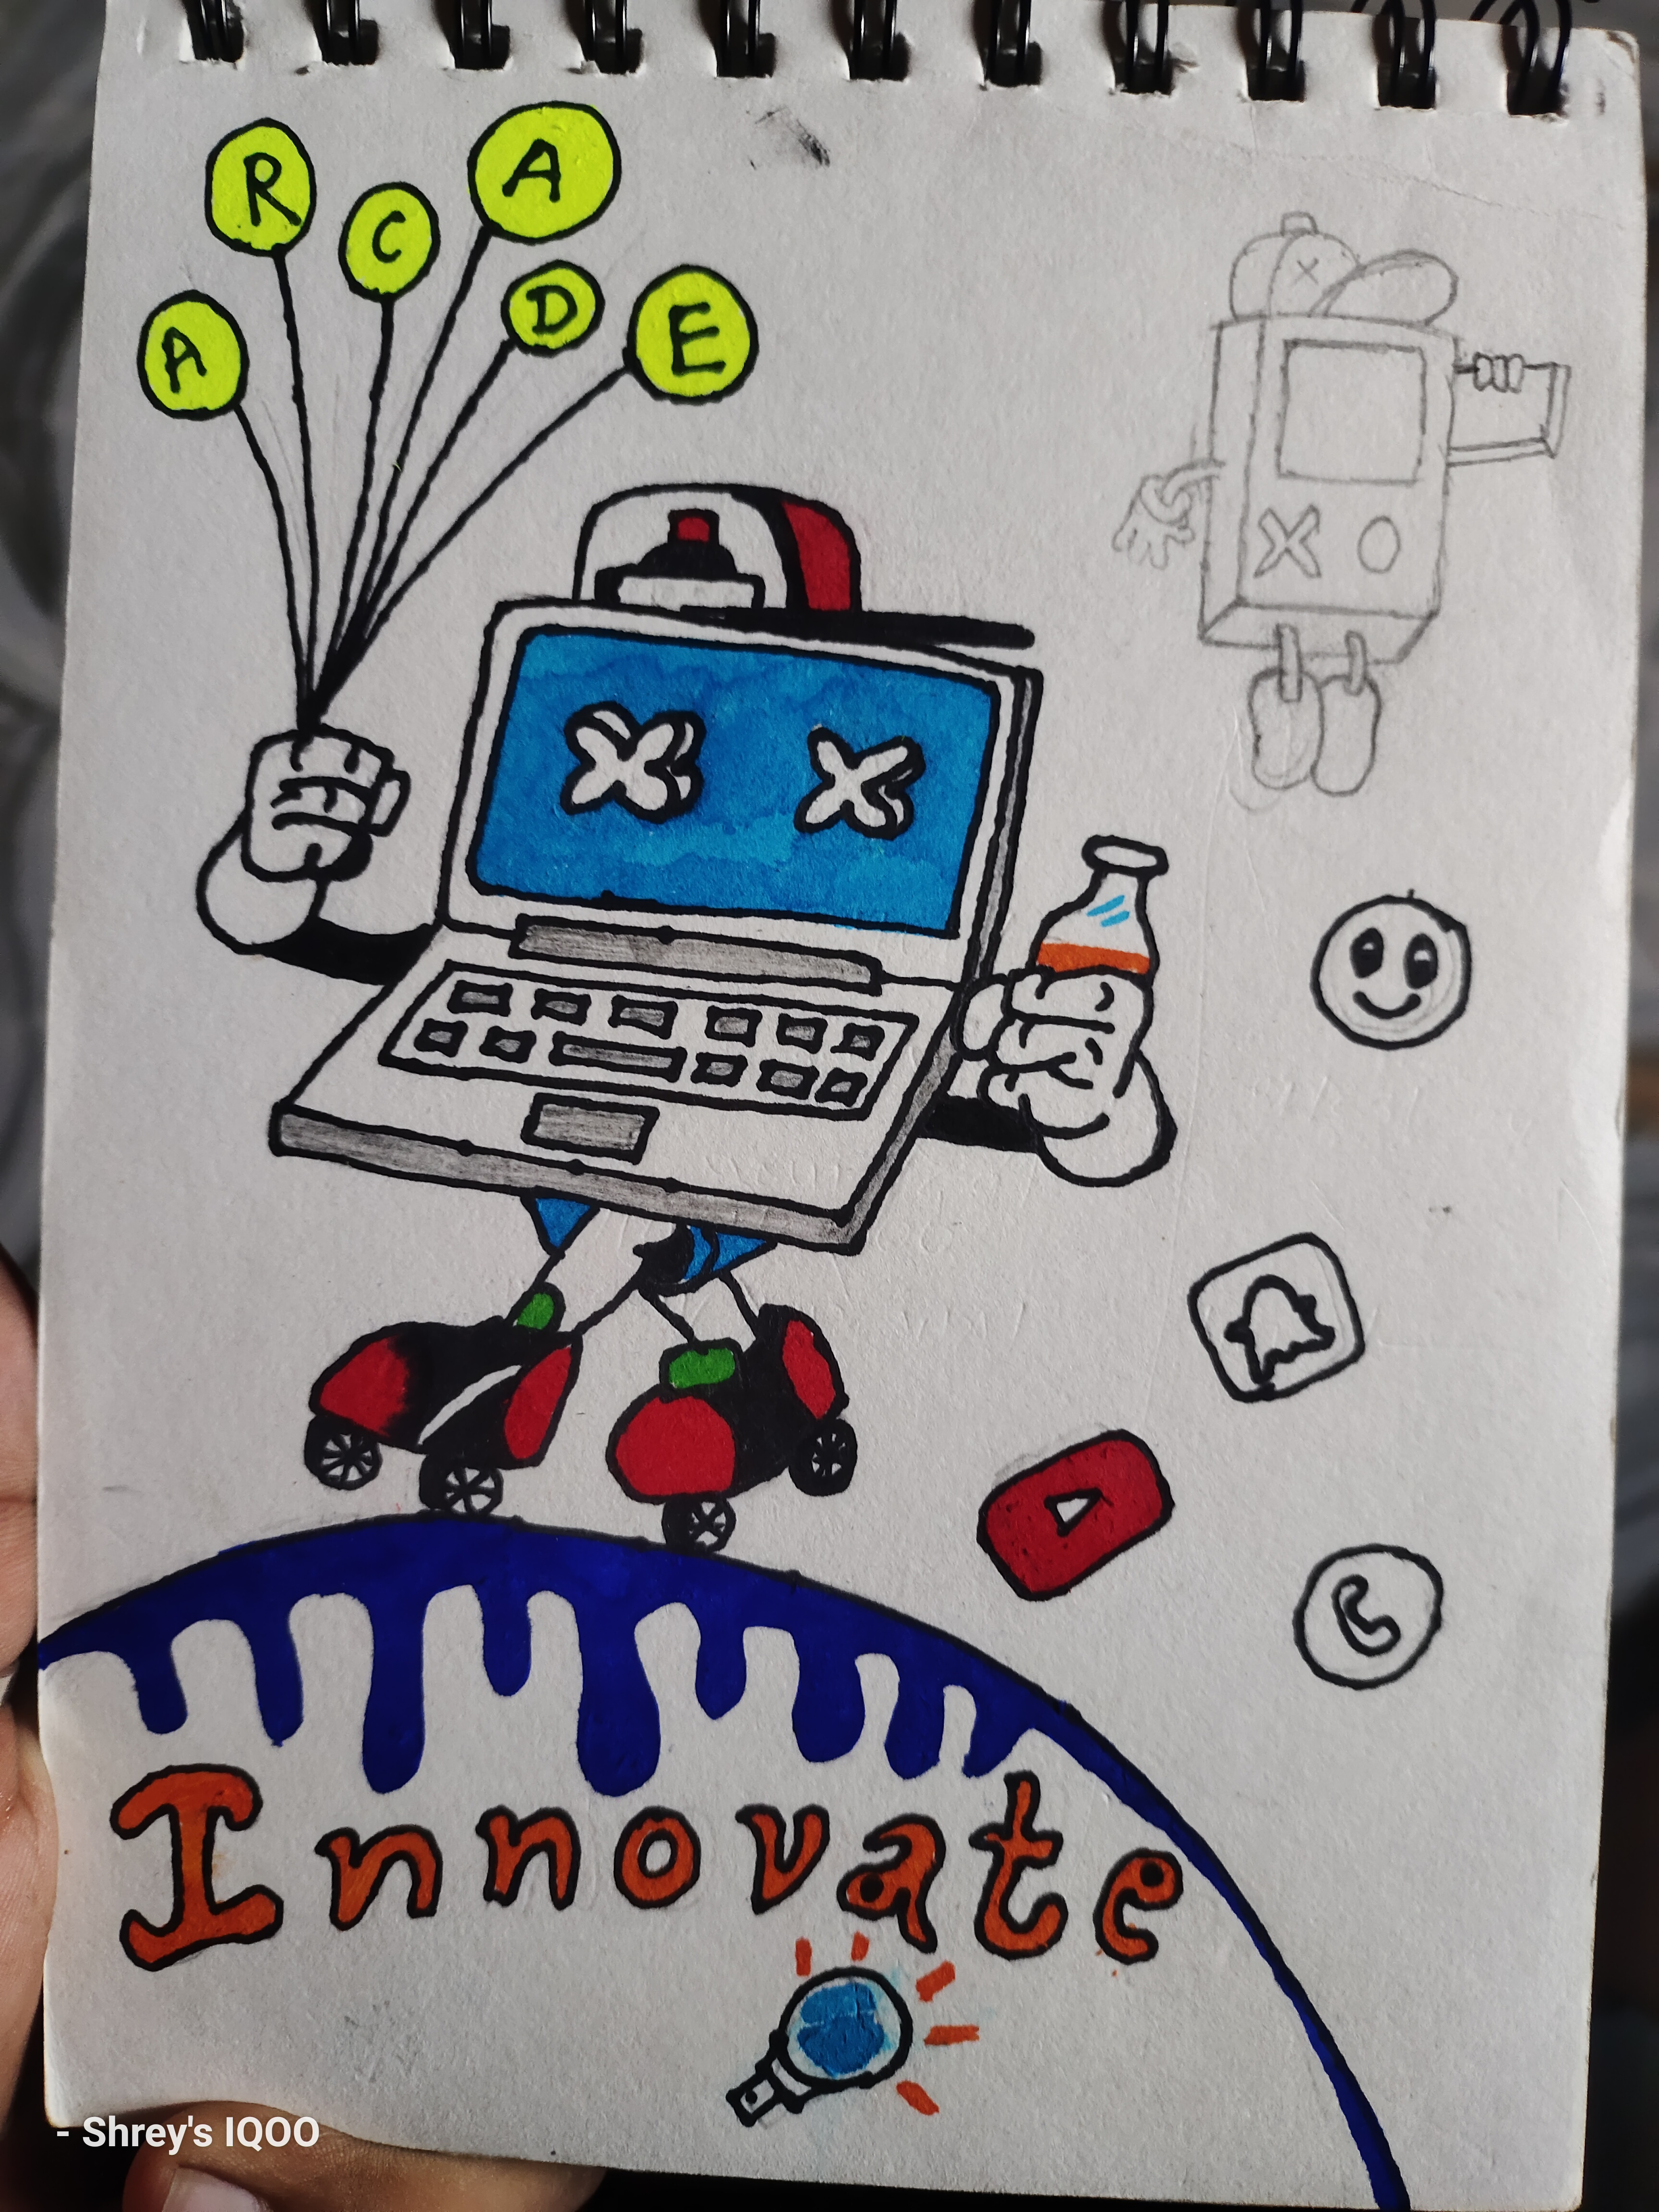 ARCADE
Innovate
- Shrey's IQOO